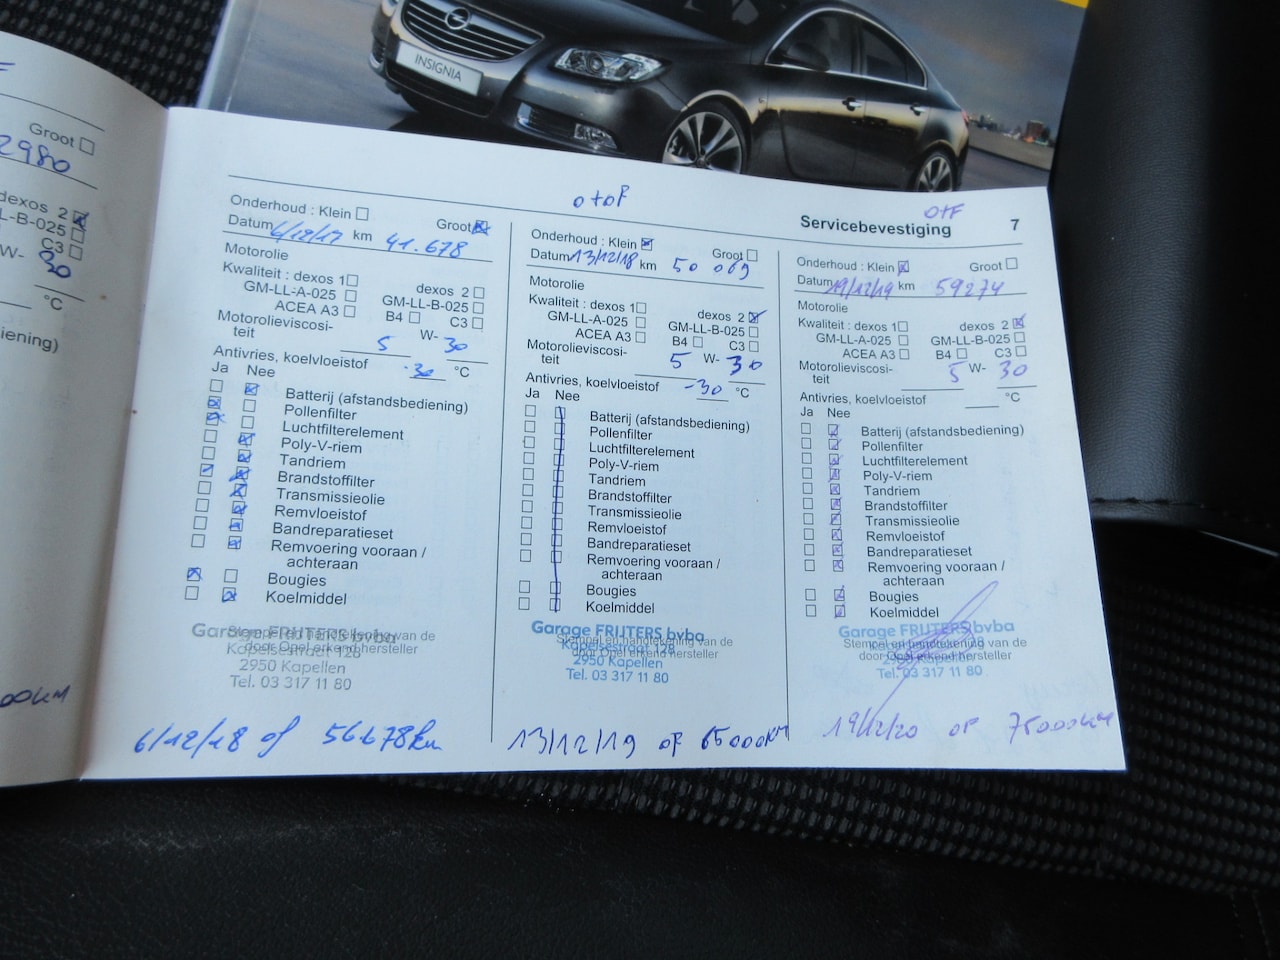 INSIGNIA
Groot
2980
dexos 2
LL-B-025
C3
W- 30
°C
iening)
00KM
otof
OTF
Servicebevestiging 7
Onderhoud : Klein Groot
Datum 6/12/17 km 41.678
Motorolie
Kwaliteit : dexos 1 dexos 2
GM-LL-A-025 GM-LL-B-025
ACEA A3 B4 C3
Motorolieviscosi-
teit 5 W- 30
Antivries, koelvloeistof -30 °C
Ja Nee
Batterij (afstandsbediening)
Pollenfilter
Luchtfilterelement
Poly-V-riem
Tandriem
Brandstoffilter
Transmissieolie
Remvloeistof
Bandreparatieset
Remvoering vooraan /
achteraan
Bougies
Koelmiddel
Garage FRIJTERS bvba
Stempel en handtekening van de
door Opel erkend hersteller
Kapelsestraat 128
2950 Kapellen
Tel. 03 317 11 80
6/12/18 of 56678km
Onderhoud : Klein Groot
Datum 13/12/18 km 50 069
Motorolie
Kwaliteit : dexos 1 dexos 2
GM-LL-A-025 GM-LL-B-025
ACEA A3 B4 C3
Motorolieviscosi-
teit 5 W- 30
Antivries, koelvloeistof -30 °C
Ja Nee
Batterij (afstandsbediening)
Pollenfilter
Luchtfilterelement
Poly-V-riem
Tandriem
Brandstoffilter
Transmissieolie
Remvloeistof
Bandreparatieset
Remvoering vooraan /
achteraan
Bougies
Koelmiddel
Garage FRIJTERS bvba
Stempel en handtekening van de
door Opel erkend hersteller
Kapelsestraat 128
2950 Kapellen
Tel. 03 317 11 80
13/12/19 of 65000KM
Onderhoud : Klein Groot
Datum 19/12/19 km 59274
Motorolie
Kwaliteit : dexos 1 dexos 2
GM-LL-A-025 GM-LL-B-025
ACEA A3 B4 C3
Motorolieviscosi-
teit 5 W- 30
Antivries, koelvloeistof °C
Ja Nee
Batterij (afstandsbediening)
Pollenfilter
Luchtfilterelement
Poly-V-riem
Tandriem
Brandstoffilter
Transmissieolie
Remvloeistof
Bandreparatieset
Remvoering vooraan /
achteraan
Bougies
Koelmiddel
Garage FRIJTERS bvba
Stempel en handtekening van de
door Opel erkend hersteller
Tel. 03 317 11 80
19/12/20 of 75000KM